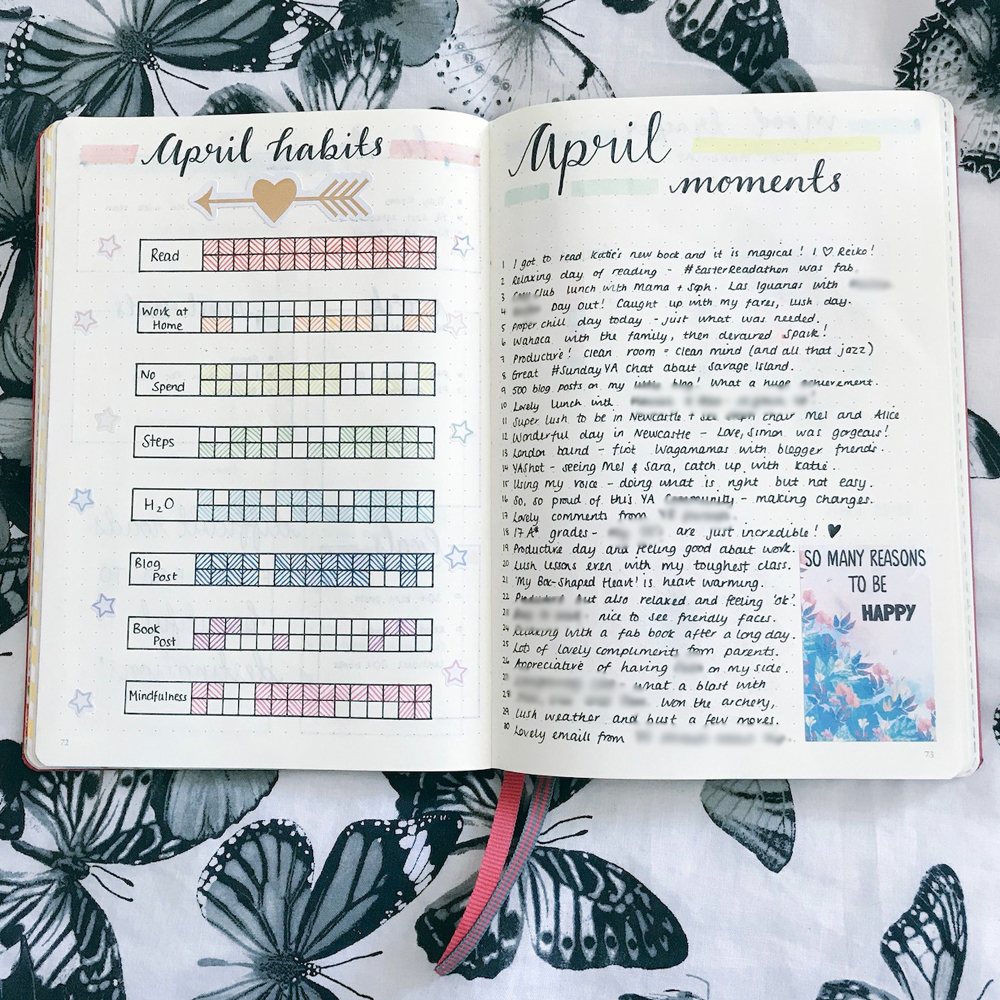 April habits
Read
Work at
Home
No
Spend
Steps
H₂O
Blog
Post
Book
Post
Mindfulness
72
April
moments
1 I got to read Katie's new book and it is magical! I ♡ Reiko!
2 Relaxing day of reading - #EasterReadathon was fab.
3 Club lunch with Mama + Soph. Las Iguanas with
4 Day Out! Caught up with my faves, lush day.
5 Proper chill day today - just what was needed.
6 Wahaca with the family, then devoured Spark!
7 Productive! Clean room = clean mind (and all that jazz)
8 Great #SundayYA chat about Savage Island.
9 500 blog posts on my little blog! What a huge achievement.
10 Lovely lunch with
11 Super lush to be in Newcastle + see Steph chair Mel and Alice.
12 Wonderful day in Newcastle - Love, Simon was gorgeous!
13 London bound - first Wagamamas with blogger friends.
14 YAShot - seeing Mel & Sara, catch up with Katie.
15 Using my voice - doing what is right but not easy.
16 So, so proud of this YA Community - making changes.
17 Lovely comments from
18 17 A* grades - are just incredible! ♥
19 Productive day and feeling good about work.
20 Lush lessons even with my toughest class.
21 'My Box-Shaped Heart' is heart warming.
22 Productive but also relaxed and feeling 'ok'.
23 - nice to see friendly faces.
24 Relaxing with a fab book after a long day.
25 Lots of lovely compliments from parents.
26 Appreciative of having on my side.
27 - what a blast with
28 won the archery,
29 Lush weather and bust a few moves.
30 Lovely emails from
SO MANY REASONS
TO BE
HAPPY
73